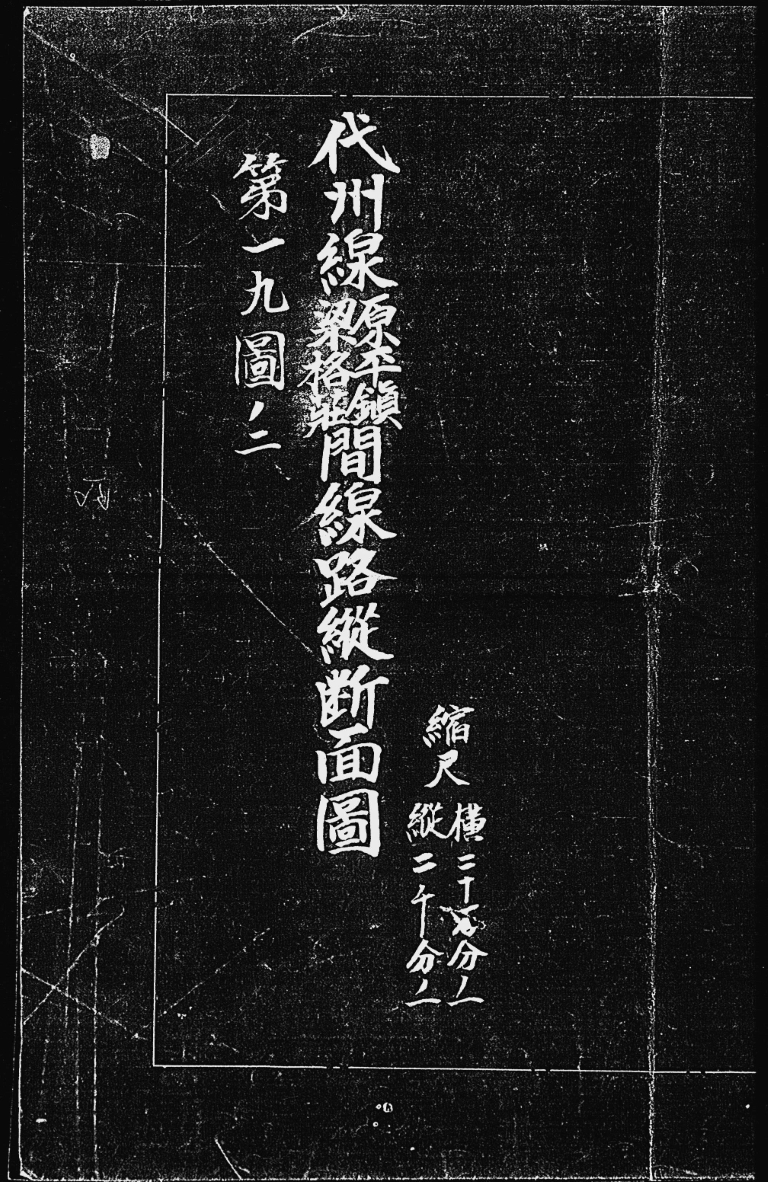 縮尺
横二十万分ノ一
縱二千分ノ一
代州線
原平鎭
梁格莊
間線路縱断面圖
第一九圖ノ二